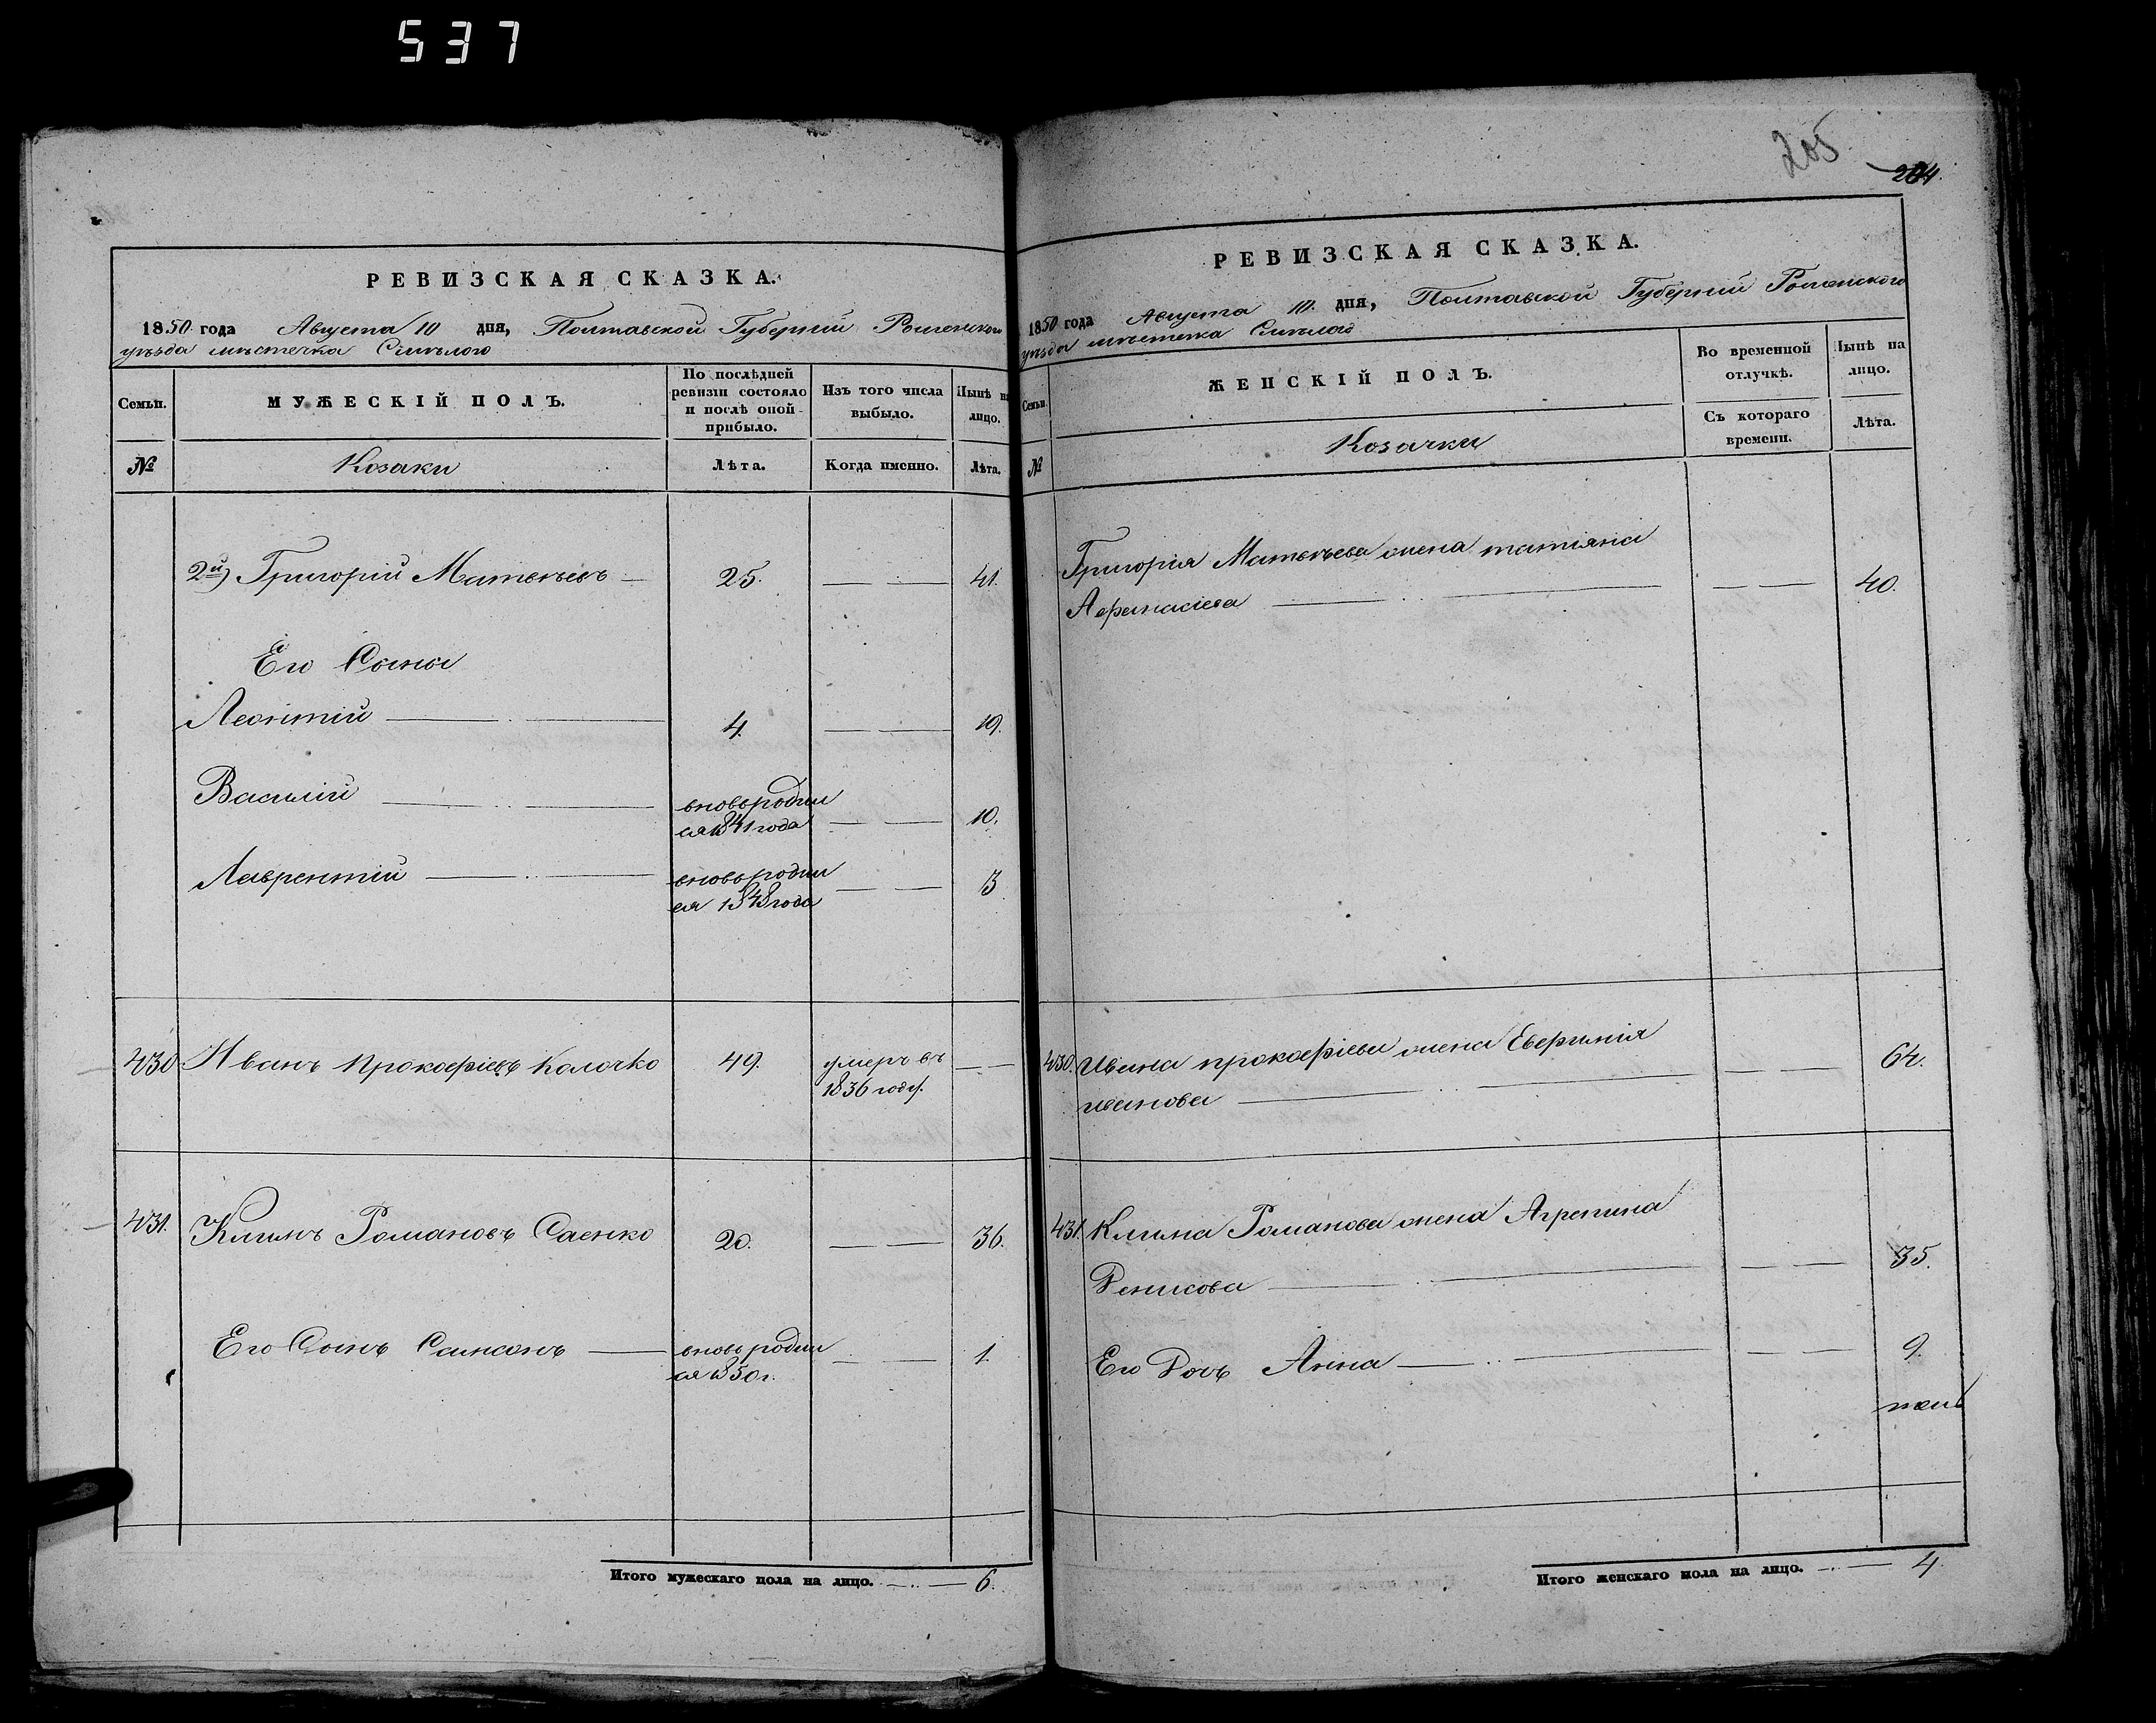 537
РЕВИЗСКАЯ СКАЗКА.
1850 года Августа 10 дня, Полтавской Губерніи Роменского
уѣзда мѣстечка Смѣлого
Семьи.
МУЖЕСКІЙ ПОЛЪ.
По послѣдней
ревизіи состояло
и послѣ оной
прибыло.
Изъ того числа
выбыло.
Нынѣ на
лицо.
№
Козаки
Лѣта.
Когда именно.
Лѣта.
2й) Григорій Матвѣевъ — 25. — — 41.
Его Сыны
Леонтій — 4. — — 19.
Василій — вновь родил
ся 1841 года — — 10.
Лаврентій — вновь родил
ся 1848 года — — 3
430 Иванъ Прокофіевъ Колочко 49. умеръ въ — —
1836 году.
431. Климъ Романовъ Саенко 20. — — 36.
Его Сынъ Самсонъ — вновь родил
ся 1850 г. — — 1.
Итого мужескаго пола на лицо. — 6.
205
204.
РЕВИЗСКАЯ СКАЗКА.
1850 года Августа 10. дня, Полтавской Губерніи Роменского
уѣзда мѣстечка Смѣлого
Семьи.
ЖЕНСКІЙ ПОЛЪ.
Во временной
отлучкѣ.
Нынѣ на
лицо.
Съ котораго
времени.
Лѣта.
№
Козачки
Григорія Матвѣева жена татіяна
Афанасіева — — — 40.
430. Ивана прокофіева жена Евфимія
иванова — — — 64.
431. Клима Романова жена Агрепина
Денисова — — — 35.
Его Дочь Анна — — — 9.
Итого женскаго пола на лицо. — 4.